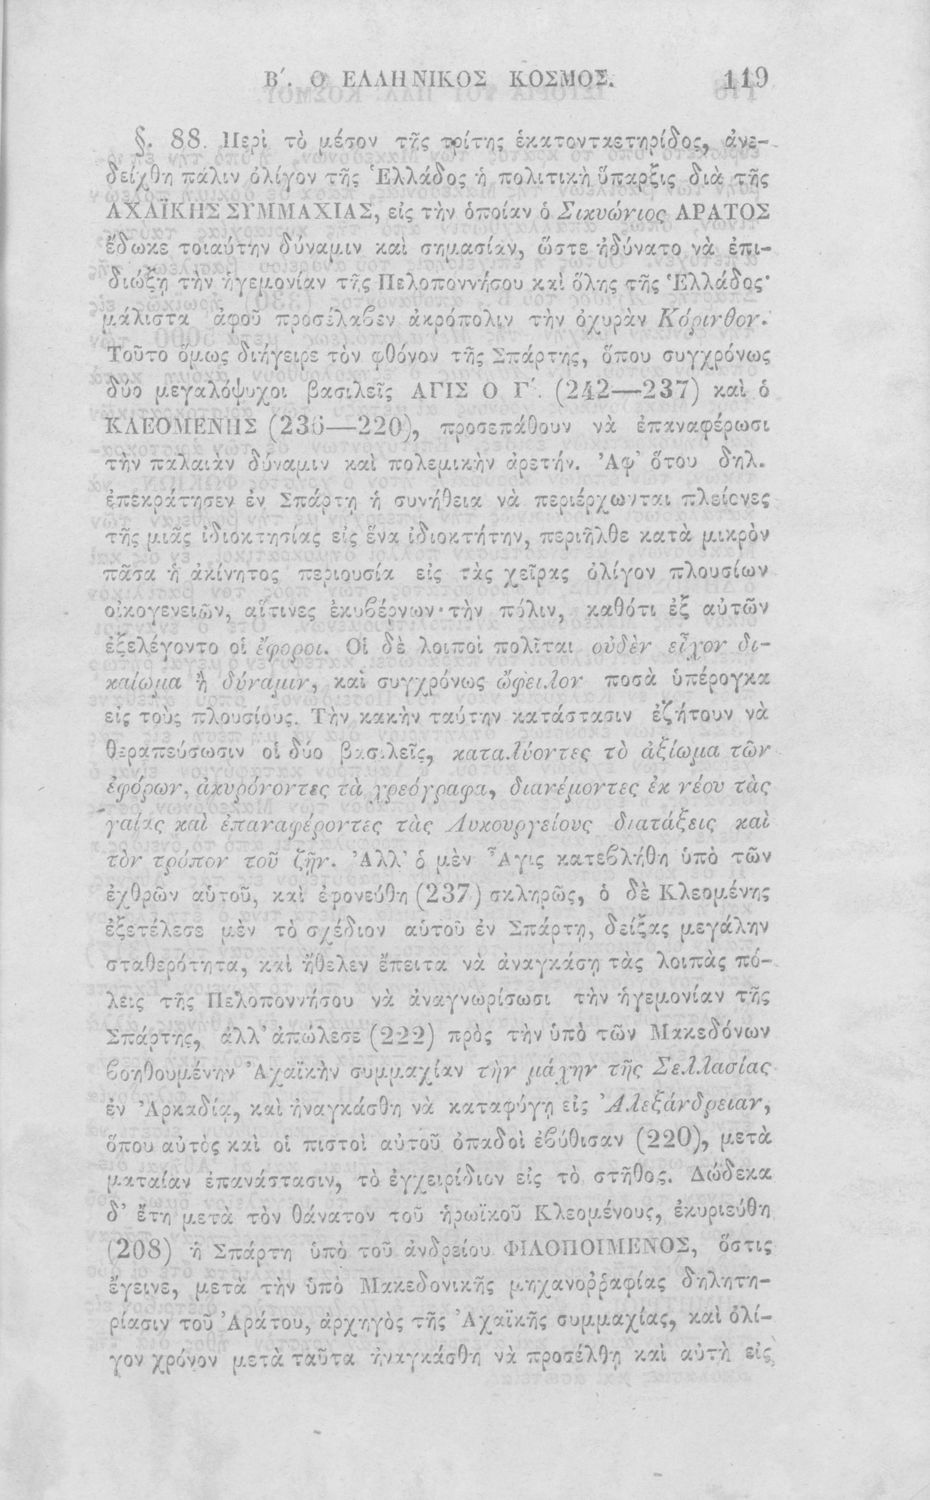 Β΄. Ο ΕΛΛΗΝΙΚΟΣ ΚΟΣΜΟΣ. 119
§. 88. Περὶ τὸ μέσον τῆς τρίτης ἑκατονταετηρίδος, ἀνε-
δείχθη πάλιν ὀλίγον τῆς Ἑλλάδος ἡ πολιτικὴ ὕπαρξις διὰ τῆς
ΑΧΑΪΚΗΣ ΣΥΜΜΑΧΙΑΣ, εἰς τὴν ὁποίαν ὁ Σικυώνιος ΑΡΑΤΟΣ
ἔδωκε τοιαύτην δύναμιν καὶ σημασίαν, ὥστε ἠδύνατο νὰ ἐπι-
διώξῃ τὴν ἡγεμονίαν τῆς Πελοποννήσου καὶ ὅλης τῆς Ἑλλάδος·
μάλιστα ἀφοῦ προσέλαβεν ἀκρόπολιν τὴν ὀχυρὰν Κόρινθον.
Τοῦτο ὅμως διήγειρε τὸν φθόνον τῆς Σπάρτης, ὅπου συγχρόνως
δύο μεγαλόψυχοι βασιλεῖς ΑΓΙΣ Ο Γ΄. (242—237) καὶ ὁ
ΚΛΕΟΜΕΝΗΣ (236—220), προσεπάθουν νὰ ἐπαναφέρωσι
τὴν παλαιὰν δύναμιν καὶ πολεμικὴν ἀρετήν. Ἀφ' ὅτου δηλ.
ἐπεκράτησεν ἐν Σπάρτῃ ἡ συνήθεια νὰ περιέρχωνται πλείονες
τῆς μιᾶς ἰδιοκτησίας εἰς ἕνα ἰδιοκτήτην, περιῆλθε κατὰ μικρὸν
πᾶσα ἡ ἀκίνητος περιουσία εἰς τὰς χεῖρας ὀλίγον πλουσίων
οἰκογενειῶν, αἵτινες ἐκυβέρνων τὴν πόλιν, καθότι ἐξ αὐτῶν
ἐξελέγοντο οἱ ἔφοροι. Οἱ δὲ λοιποὶ πολῖται οὐδὲν εἶχον δι-
καίωμα ἢ δύναμιν, καὶ συγχρόνως ὤφειλον ποσὰ ὑπέρογκα
εἰς τοὺς πλουσίους. Τὴν κακὴν ταύτην κατάστασιν ἐζήτουν νὰ
θεραπεύσωσιν οἱ δύο βασιλεῖς, καταλύοντες τὸ ἀξίωμα τῶν
ἐφόρων, ἀκυρόνοντες τὰ χρεόγραφα, διανέμοντες ἐκ νέου τὰς
γαίας καὶ ἐπαναφέροντες τὰς Λυκουργείους διατάξεις καὶ
τὸν τρόπον τοῦ ζῆν. Ἀλλ' ὁ μὲν Ἆγις κατεβλήθη ὑπὸ τῶν
ἐχθρῶν αὑτοῦ, καὶ ἐφονεύθη (237) σκληρῶς, ὁ δὲ Κλεομένης
ἐξετέλεσε μὲν τὸ σχέδιον αὑτοῦ ἐν Σπάρτῃ, δείξας μεγάλην
σταθερότητα, καὶ ἤθελεν ἔπειτα νὰ ἀναγκάσῃ τὰς λοιπὰς πό-
λεις τῆς Πελοποννήσου νὰ ἀναγνωρίσωσι τὴν ἡγεμονίαν τῆς
Σπάρτης, ἀλλ' ἀπώλεσε (222) πρὸς τὴν ὑπὸ τῶν Μακεδόνων
βοηθουμένην Ἀχαϊκὴν συμμαχίαν τὴν μάχην τῆς Σελλασίας
ἐν Ἀρκαδίᾳ, καὶ ἠναγκάσθη νὰ καταφύγῃ εἰς Ἀλεξάνδρειαν,
ὅπου αὐτὸς καὶ οἱ πιστοὶ αὑτοῦ ὀπαδοὶ ἐβύθισαν (220), μετὰ
ματαίαν ἐπανάστασιν, τὸ ἐγχειρίδιον εἰς τὸ στῆθος. Δώδεκα
δ' ἔτη μετὰ τὸν θάνατον τοῦ ἡρωϊκοῦ Κλεομένους, ἐκυριεύθη
(208) ἡ Σπάρτη ὑπὸ τοῦ ἀνδρείου ΦΙΛΟΠΟΙΜΕΝΟΣ, ὅστις
ἔγεινε, μετὰ τὴν ὑπὸ Μακεδονικῆς μηχανοῤῥαφίας δηλητη-
ρίασιν τοῦ Ἀράτου, ἀρχηγὸς τῆς Ἀχαϊκῆς συμμαχίας, καὶ ὀλί-
γον χρόνον μετὰ ταῦτα ἠναγκάσθη νὰ προσέλθῃ καὶ αὐτὴ εἰς